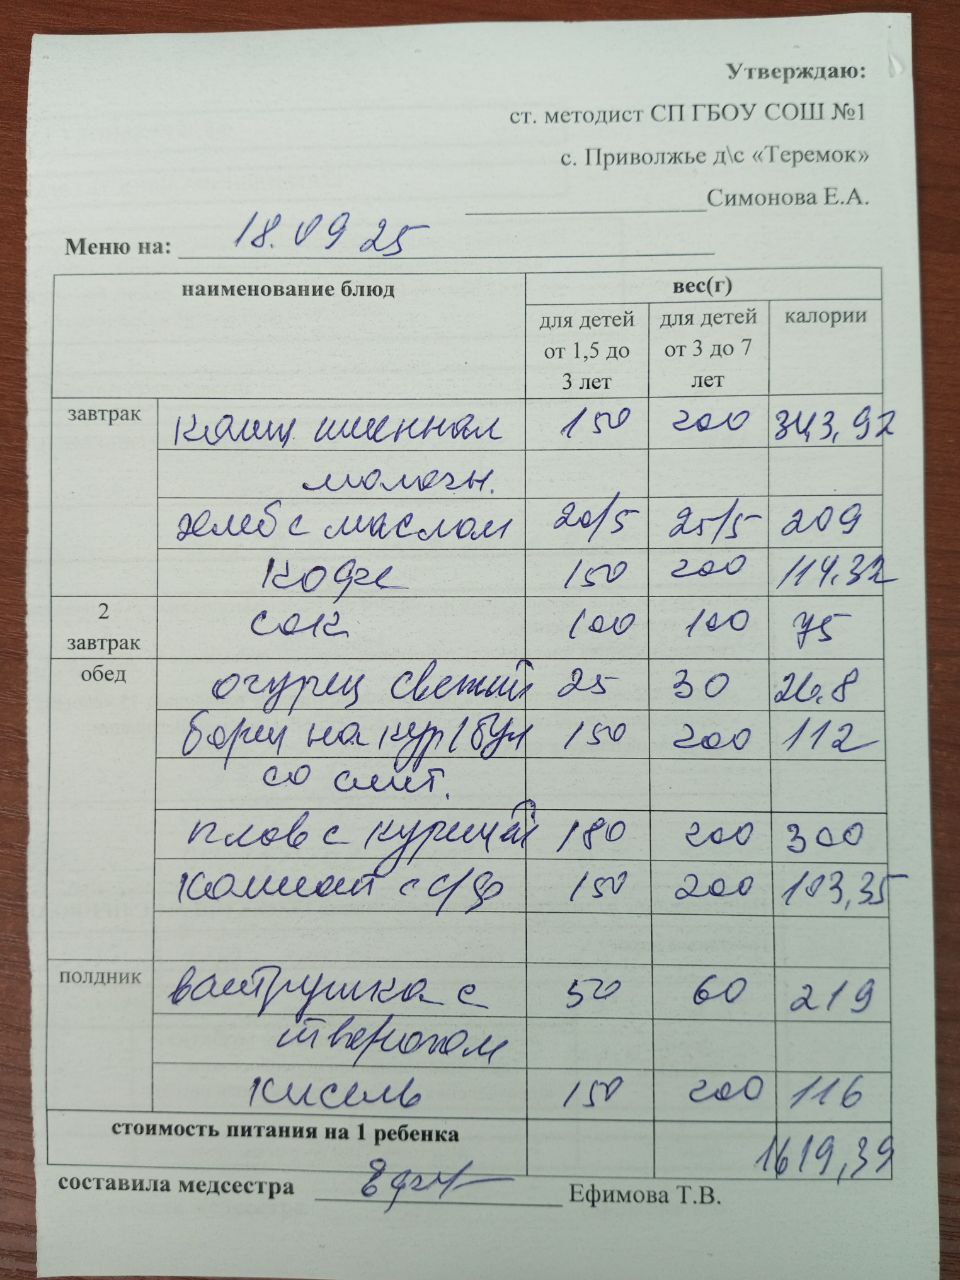 Утверждаю:
ст. методист СП ГБОУ СОШ №1
с. Приволжье д\с «Теремок»
Симонова Е.А.
Меню на: 18.09 25
наименование блюд вес(г)
для детей от 1,5 до 3 лет для детей от 3 до 7 лет калории
завтрак каша пшенная 150 200 343,92
молочн.
хлеб с маслом 20/5 25/5 209
Кофе 150 200 114.32
2 завтрак сок 100 100 75
обед огурец свежий 25 30 26.8
борщ на кур/бул 150 200 112
со смет.
плов с курицей 180 200 300
Компот с с/ф 150 200 103,35
полдник ватрушка с 50 60 219
творогом
кисель 150 200 116
стоимость питания на 1 ребенка 1619,39
составила медсестра Ефимова Т.В.